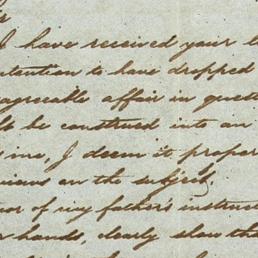 I have received your l
ntention to have dropped
agreeable affair in quest
be construed into an
me, I deem it proper
views on the subject.
or of my father's instruct
r hands, clearly show tha